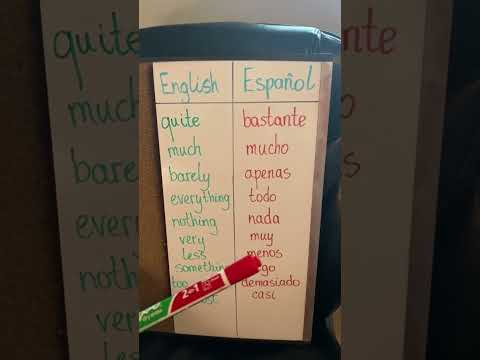 English Español
quite bastante
much mucho
barely apenas
everything todo
nothing nada
very muy
less menos
something
too demasiado
casi